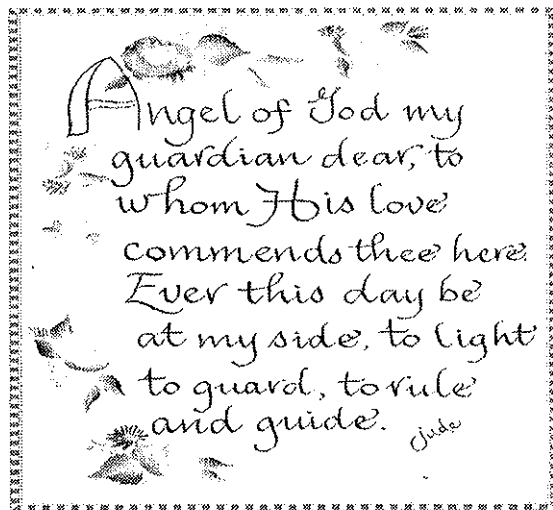 Angel of God my
guardian dear, to
whom His love
commends thee here.
Ever this day be
at my side, to light
to guard, to rule
and guide.
Jude